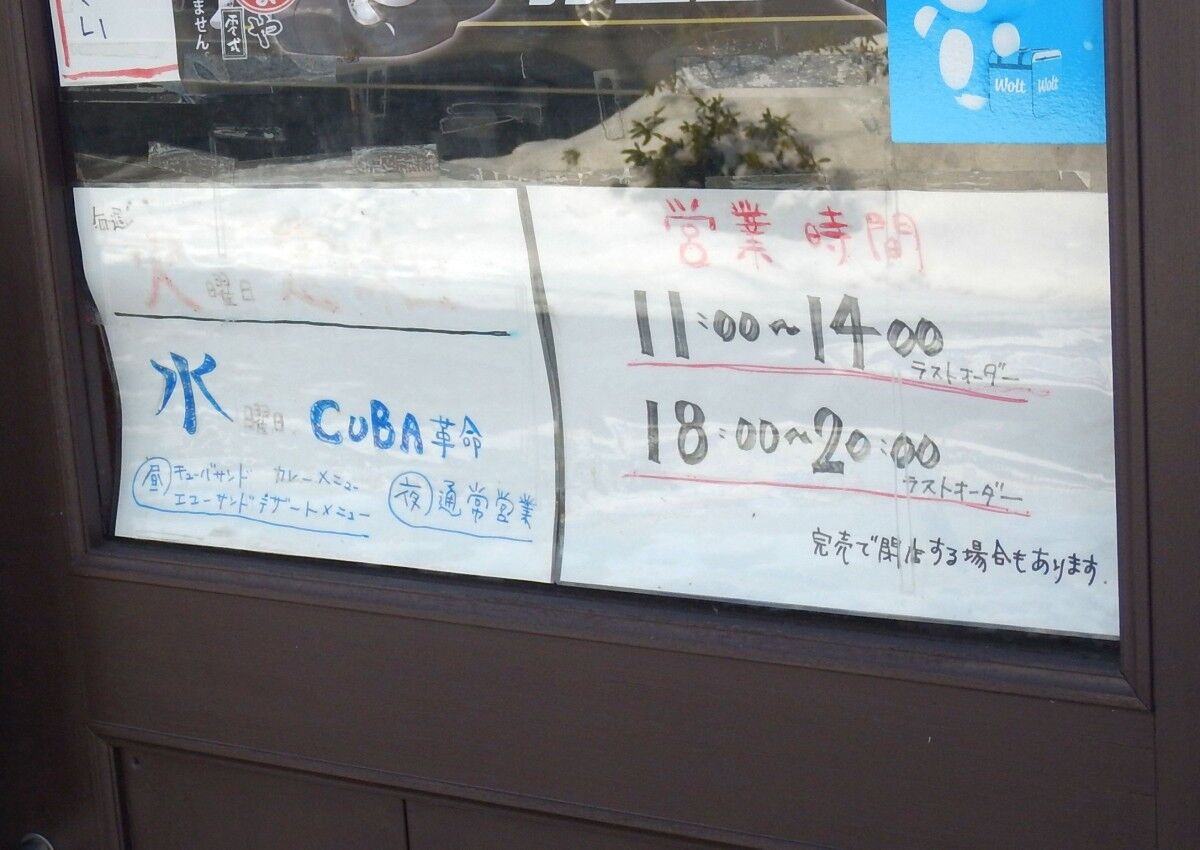 さい
ません
零式
や
Wolt Wolt
毎週
火曜日 定休
水曜日 CUBA革命
昼 キューバサンド カレーメニュー
エローサンド デザートメニュー
夜 通常営業
営業時間
11:00~14:00
ラストオーダー
18:00~20:00
ラストオーダー
完売で閉店する場合もあります.